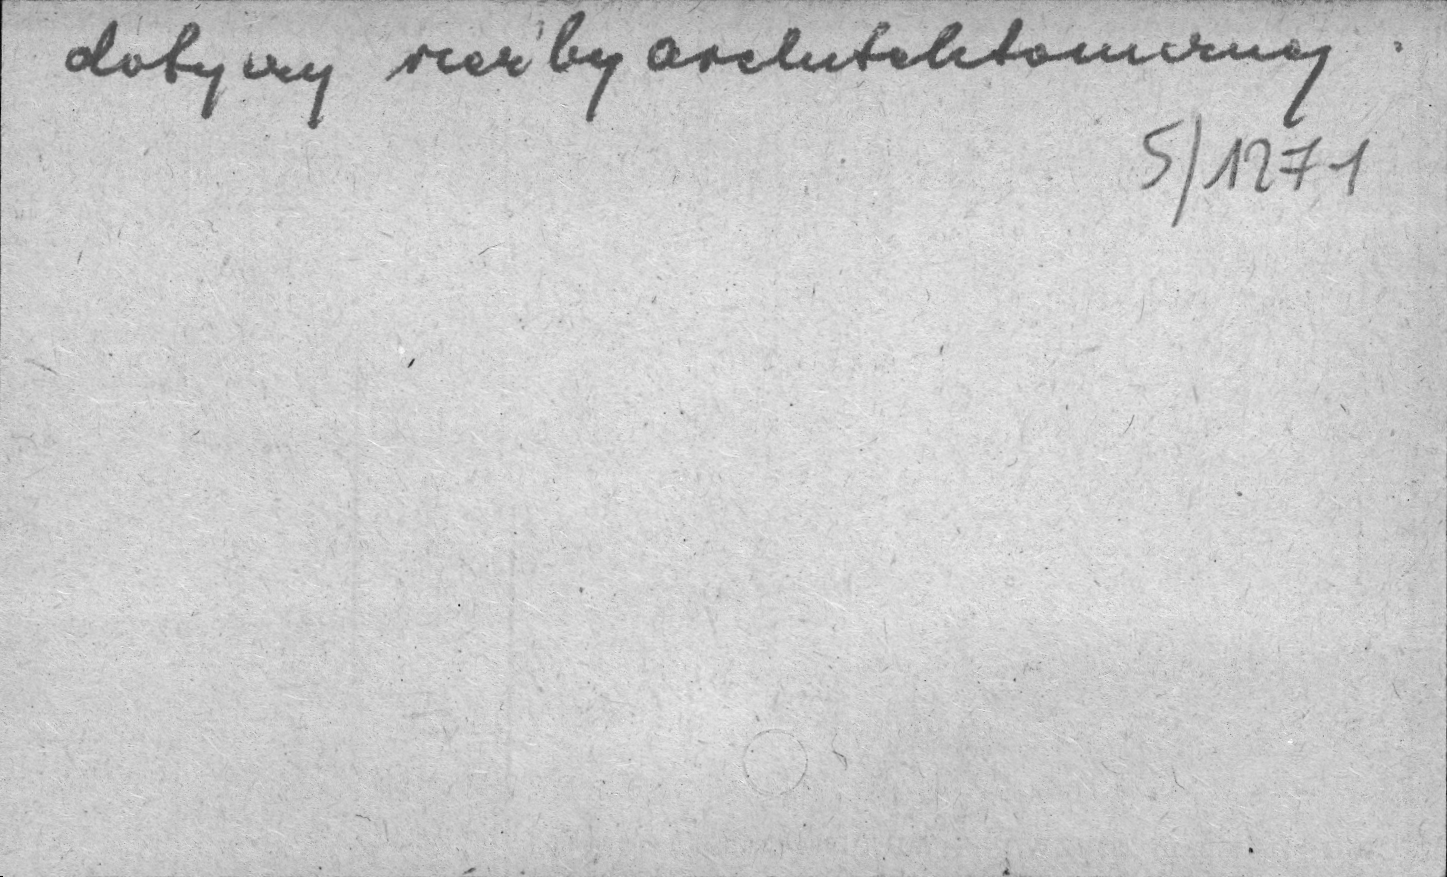 dotyczy rzeźby architektonicznej.
5/1271